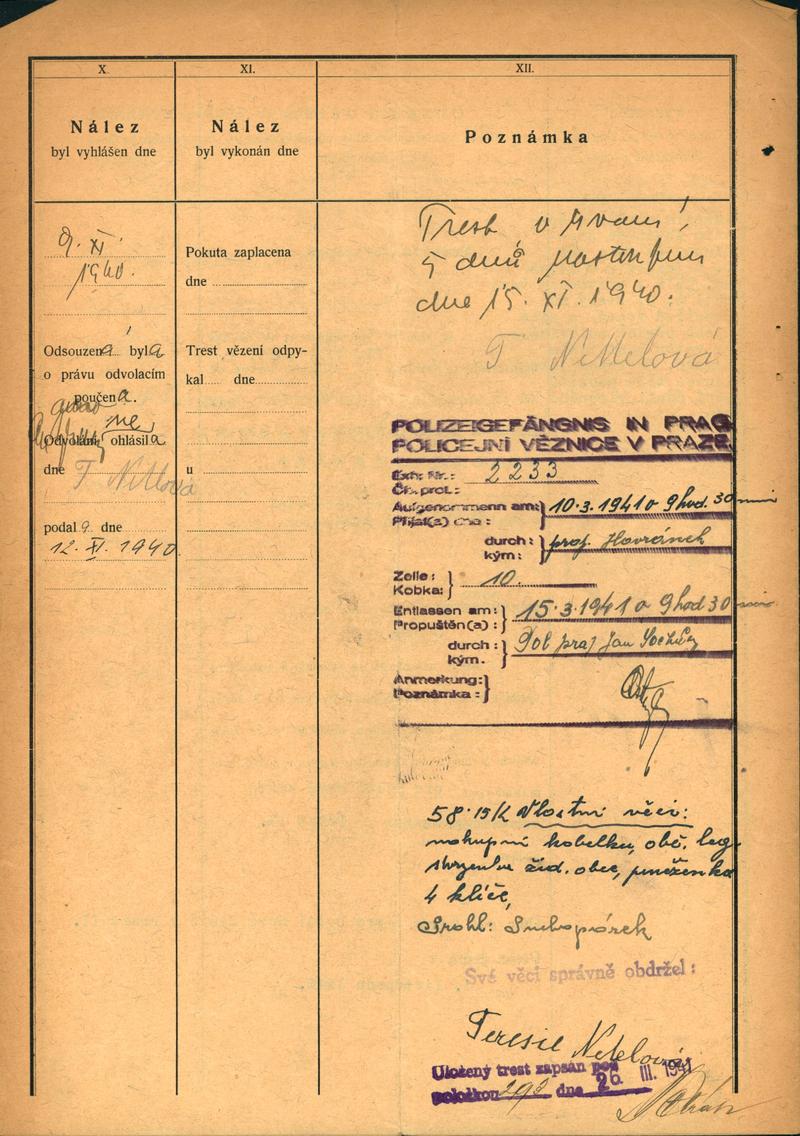 X.
Nález
byl vyhlášen dne
9. XI.
1940.
Odsouzená byla
o právu odvolacím
poučena.
ne
Odvolání ohlásila
dne
podal dne
12. XI. 1940
XI.
Nález
byl vykonán dne
Pokuta zaplacena
dne
Trest vězení odpy-
kal dne
u
XII.
Poznámka
Trest
5 dnů
dne 15. XI. 1940.
T Nettelová
POLIZEIGEFÄNGNIS IN PRAG
POLICEJNÍ VĚZNICE V PRAZE
Exh. Nr.: 2233
Čís. prot.:
Aufgenommenn am: 10.3.1941 o 9 hod. 30 min
Přijat(a) dne:
durch: prof. Havránek
kým:
Zelle: 10.
Kobka:
Entlassen am: 15.3.1941 o 9 hod 30 min
Propuštěn(a):
durch: Jan
kým.
Anmerkung:
Poznámka:
58.15 K Vlastní věci:
nákupní kabelku, obč. leg.
žid. obec, peněženka
4 klíče,
Prohl:
Své věci správně obdržel:
Teresie Nettelová
Uložený trest zapsán pod
položkou 292 dne 26. III. 1941